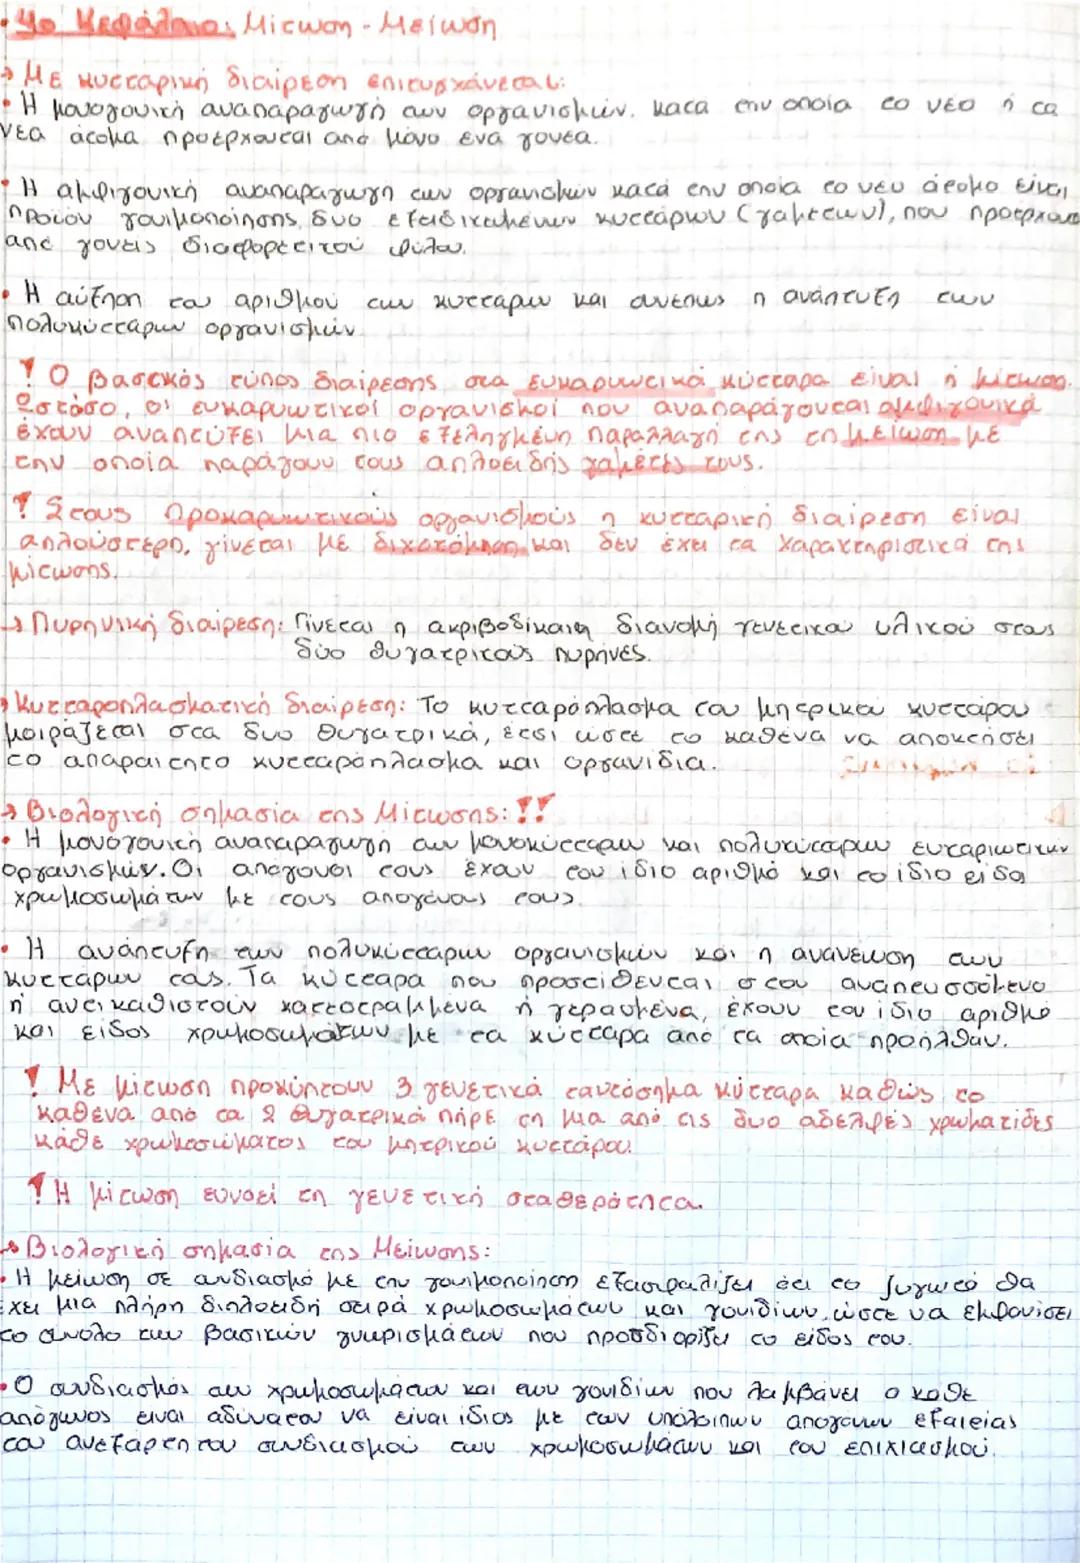 4ο Κεφάλαιο: Μίτωση - Μείωση
→ Με κυτταρική διαίρεση επιτυγχάνεται:
• Η μονογονική αναπαραγωγή των οργανισμών. κατά την οποία το νέο ή τα
νέα άτομα προέρχονται από μόνο ένα γονέα.
• Η αμφιγονική αναπαραγωγή των οργανισμών κατά την οποία το νέο άτομο είναι
προϊόν γονιμοποίησης δυο εξειδικευμένων κυττάρων (γαμετών), που προέρχονται
από γονείς διαφορετικού φύλου.
• Η αύξηση του αριθμού των κυττάρων και συνεπώς η ανάπτυξη των
πολυκύτταρων οργανισμών.
! Ο βασικός τύπος διαίρεσης στα ευκαρυωτικά κύτταρα είναι η μίτωση.
Ωστόσο, οι ευκαρυωτικοί οργανισμοί που αναπαράγονται αμφιγονικά
έχουν αναπτύξει μια πιο εξελιγμένη παραλλαγή της τη μείωση με
την οποία παράγουν τους απλοειδής γαμέτες τους.
! Στους προκαρυωτικούς οργανισμούς η κυτταρική διαίρεση είναι
απλούστερη, γίνεται με διχοτόμηση και δεν έχει τα χαρακτηριστικά της
μίτωσης.
→ Πυρηνική διαίρεση: Γίνεται η ακριβοδίκαιη διανομή γενετικού υλικού στους
δύο θυγατρικούς πυρήνες.
→ Κυτταροπλασματική διαίρεση: Το κυτταρόπλασμα του μητρικού κυττάρου
μοιράζεται στα δυο θυγατρικά, έτσι ώστε το καθένα να αποκτήσει
το απαραίτητο κυτταρόπλασμα και οργανίδια.
→ Βιολογική σημασία της Μίτωσης: !!
• Η μονογονική αναπαραγωγή των μονοκύτταρων και πολυκύτταρων ευκαριωτικών
οργανισμών. Οι απόγονοι τους έχουν τον ίδιο αριθμό και το ίδιο είδος
χρωμοσωμάτων με τους απογόνους τους.
• Η ανάπτυξη των πολυκύτταρων οργανισμών και η ανανέωση των
κυττάρων τους. Τα κύτταρα που προστίθενται στον αναπτυσσόμενο
ή αντικαθιστούν κατεστραμμένα ή γερασμένα, έχουν τον ίδιο αριθμό
και είδος χρωμοσωμάτων με τα κύτταρα από τα οποία προήλθαν.
! Με μίτωση προκύπτουν 3 γενετικά ταυτόσημα κύτταρα καθώς το
καθένα από τα 2 θυγατρικά πήρε τη μια από τις δυο αδελφές χρωματίδες
κάθε χρωμοσώματος του μητρικού κυττάρου.
! Η μίτωση ευνοεί τη γενετική σταθερότητα.
→ Βιολογική σημασία της Μείωσης:
• Η μείωση σε συνδιασμό με την γονιμοποίηση εξασφαλίζει ότι το ζυγωτό θα
έχει μια πλήρη διπλοειδή σειρά χρωμοσωμάτων και γονιδίων, ώστε να εμφανίσει
το σύνολο των βασικών γνωρισμάτων που προσδιορίζει το είδος του.
• Ο συνδιασμός των χρωμοσωμάτων και των γονιδίων που λαμβάνει ο κάθε
απόγονος είναι αδύνατον να είναι ίδιος με των υπόλοιπων απογόνων εξαιτίας
του ανεξάρτητου συνδιασμού των χρωμοσωμάτων και του επιχιασμού.